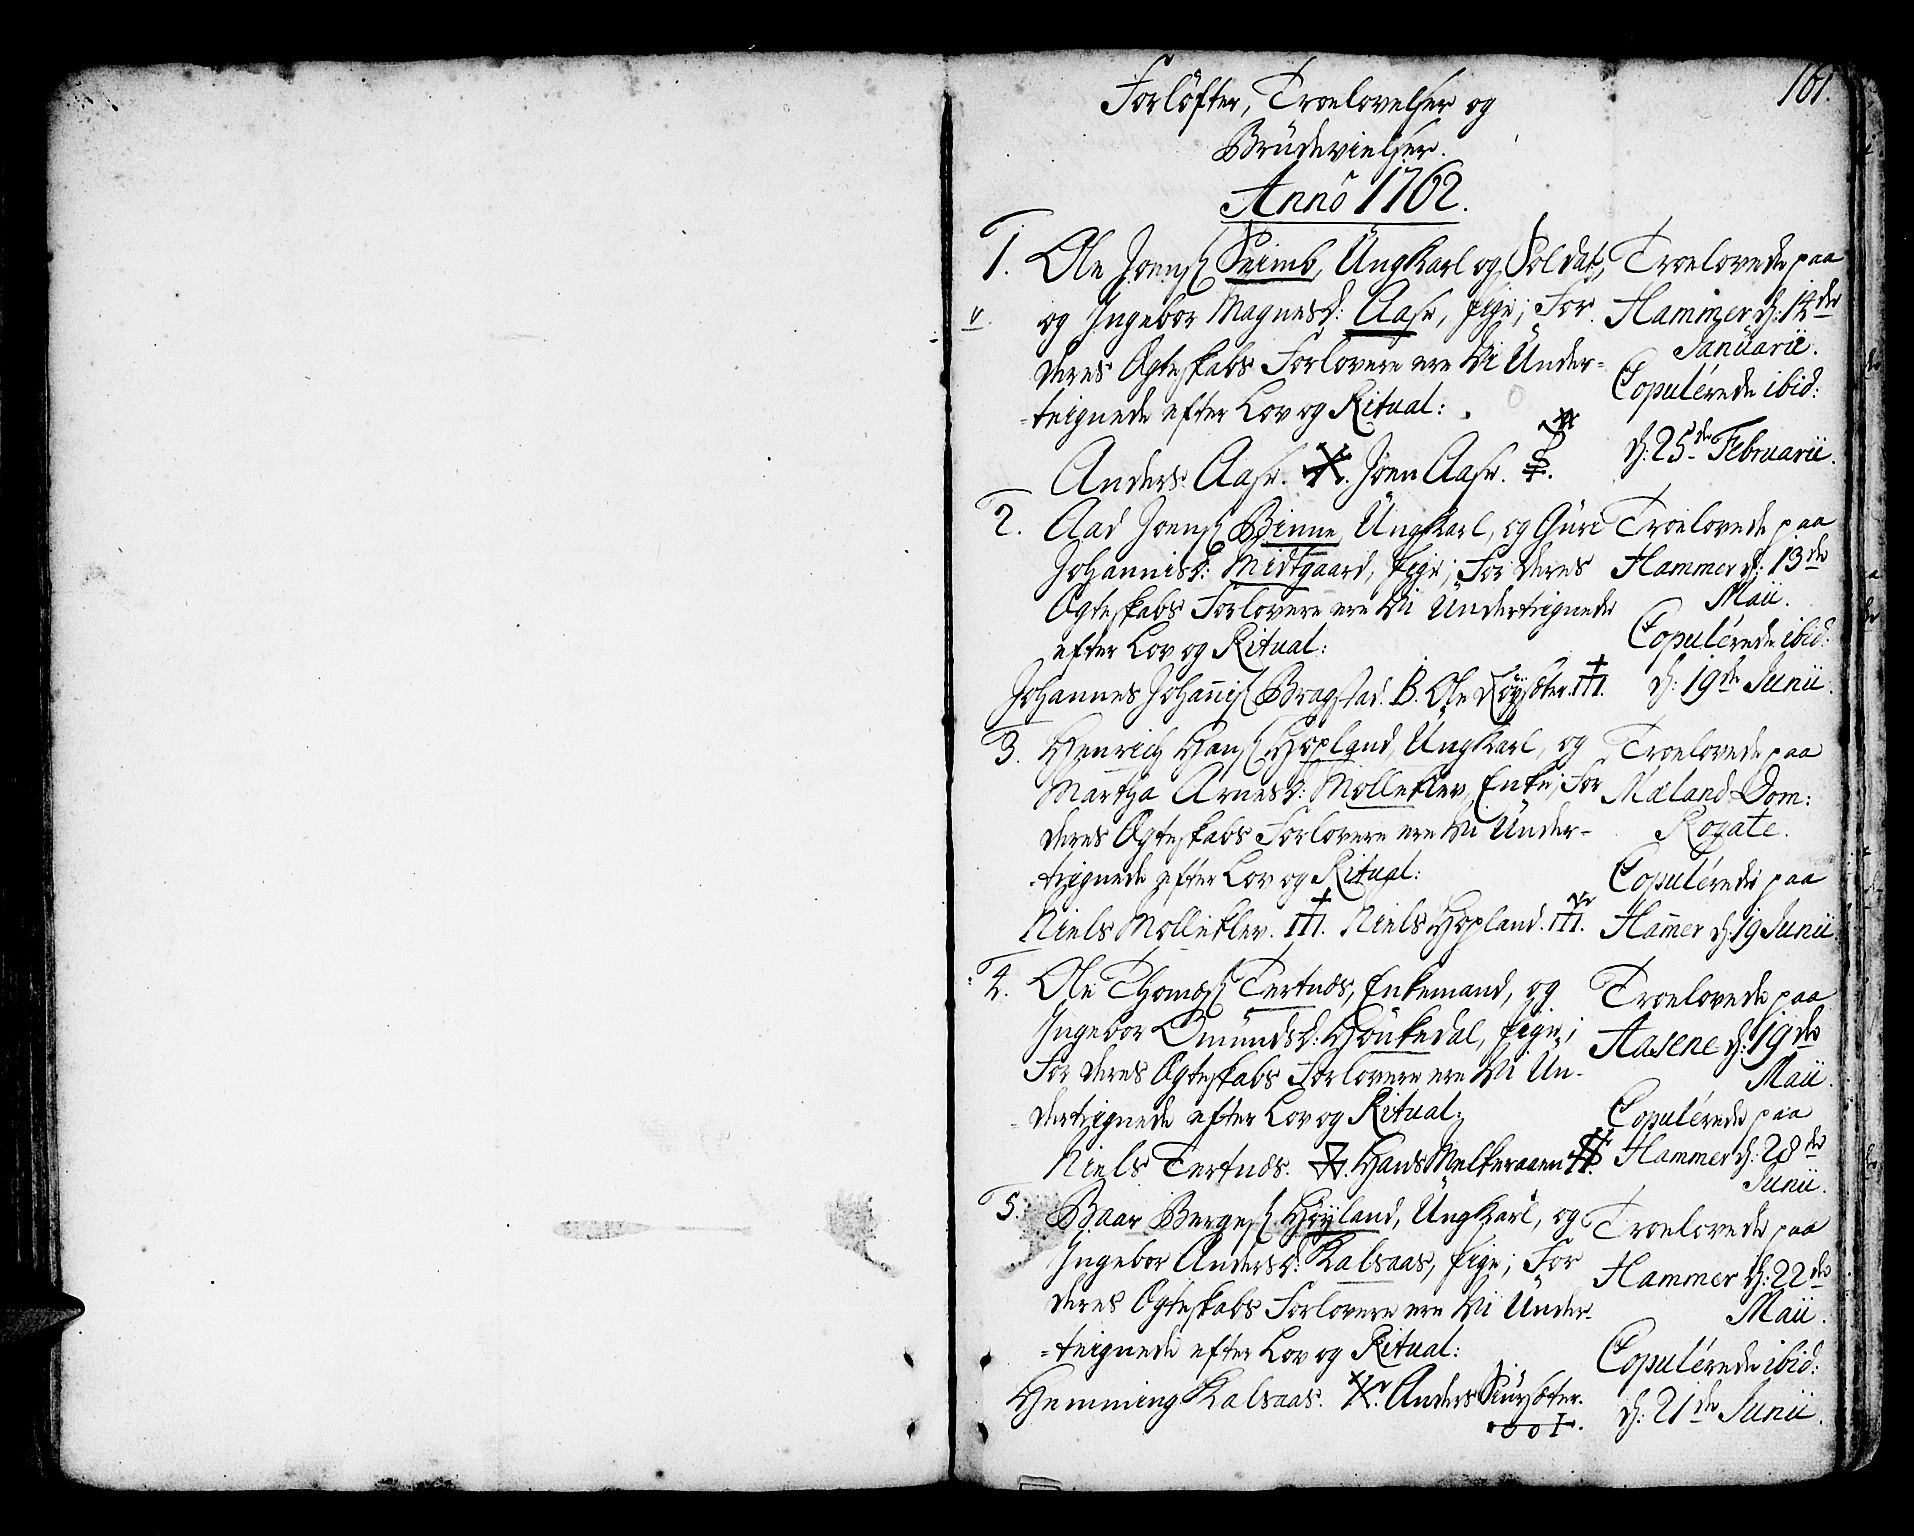 161.
Forløfter, Troelovelser og
Brüdevielser.
Anno 1762.
1. Ole Joens. Seimb, Ungkarl og Soldat,
og Ingebor Magnesd: Aase, pige; For
deres Ægteskabs Forlovere ere Vi Under-
-teignede efter Lov og Ritual:
Anders Aase. Joen Aase.
Troelovede paa
Hammer d: 14de
Januarii.
Copulérede ibid:
d: 25de Februarii.
2. Aad Joens. Binne, Ungkarl, og Güri
Johannisd: Midtgaard, pige; For deres
Ægteskabs Forlovere ere Vi Underteignede
efter Lov og Ritual:
Johannes Johannis. Bragstad. B. Ole
Troelovede paa
Hammer d: 13de
Maii.
Copulérede ibid:
d: 19de Junii.
3. Henrich Hans. Hopland, Ungkarl, og
Martha Arnesd: Molleklev, Enke; For
deres Ægteskabs Forlovere ere Vi Under-
-teignede efter Lov og Ritual:
Niels Molleklev. Niels Hopland.
Troelovede paa
Mæland Dom:
Rogate.
Copulérede paa
Hamer d: 19 Junii.
4. Ole Thomes. Tertnæs, Enkemand, og
Ingebor Omündsd: Houkedal, pige;
For deres Ægteskabs Forlovere ere Vi Un-
-derteignede efter Lov og Ritual:
Niels Tertnæs. Hans Melkeraaen
Troelovede paa
Aasene d: 19de
Maii.
Copulérede paa
Hammer d: 28de
Junii.
5. Baar Berges. Høyland, Ungkarl, og
Ingebor Andersd: Kalsaas, pige; For
deres Ægteskabs Forlovere ere Vi Under-
-teignede efter Lov og Ritual:
Hemming Kalsaas. Anders
Troelovede paa
Hammer d: 22de
Maii.
Copulérede ibid:
d: 21de Junii.